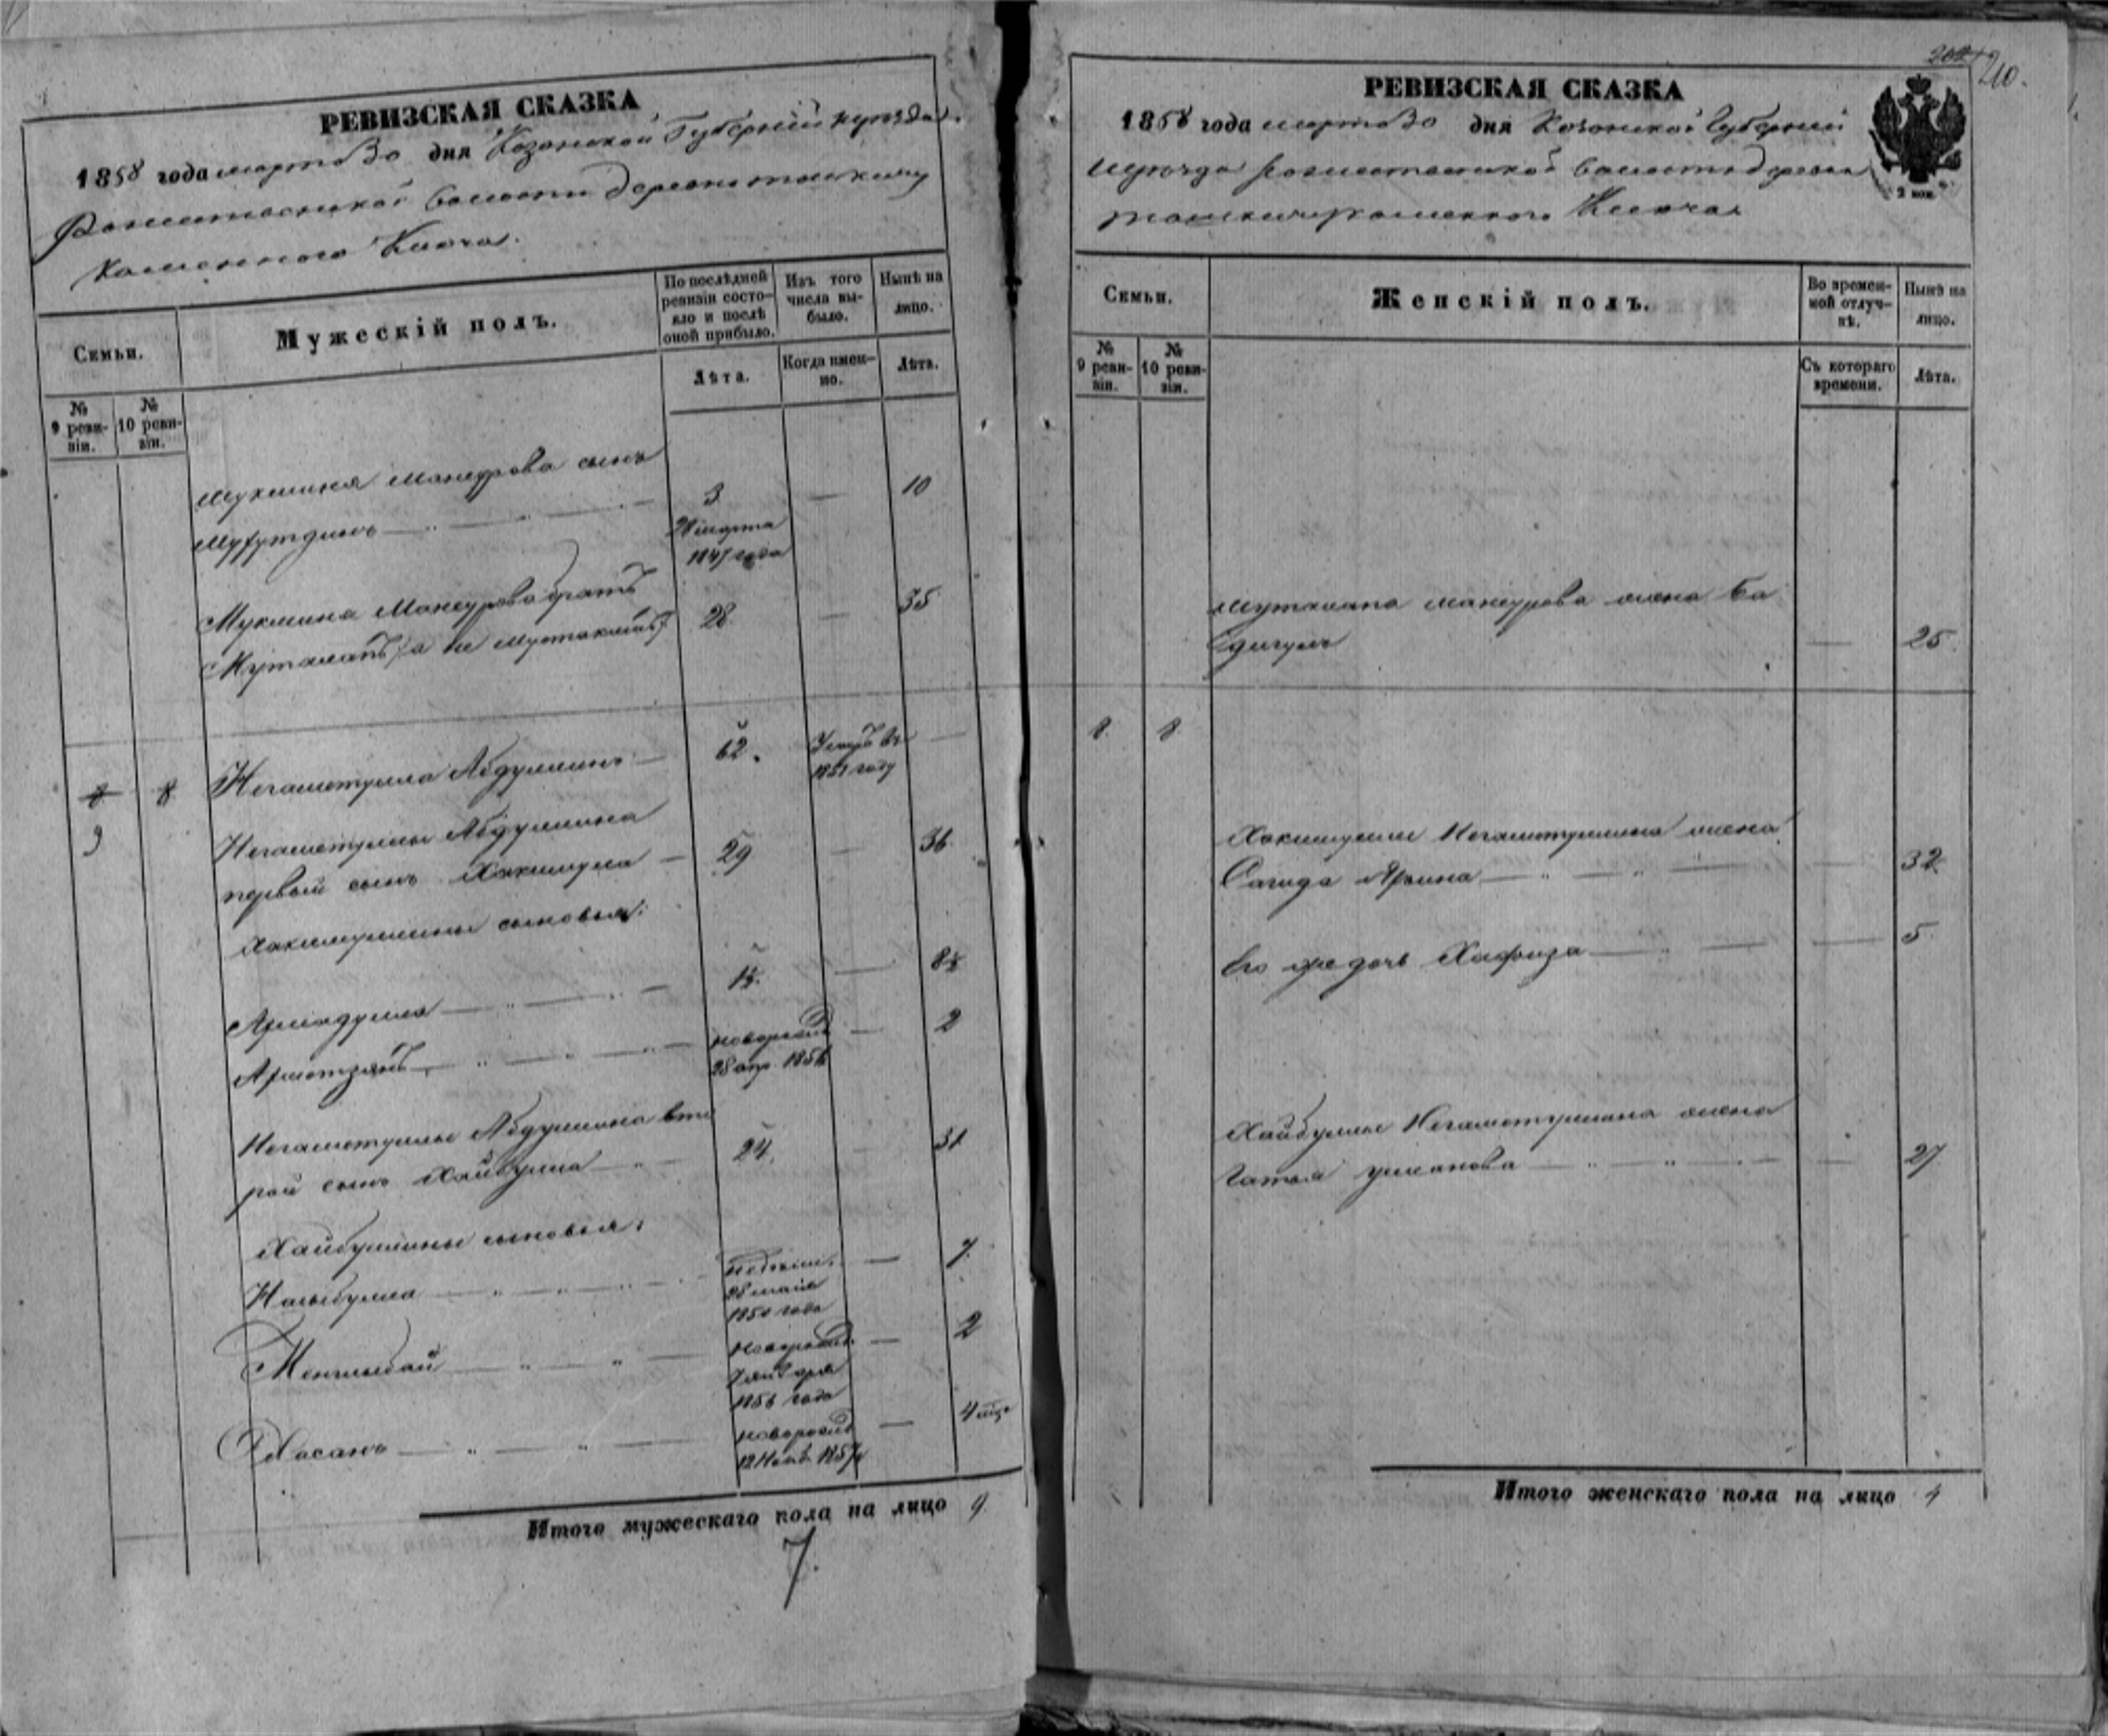 РЕВИЗСКАЯ СКАЗКА
1858 года марта 30 дня Казанской Губернии и уезда
волости деревни
Каменного Ключа.
Семьи.
Мужескій полъ.
По послѣдней ревизіи состояло и послѣ оной прибыло.
Изъ того числа выбыло.
Нынѣ на лицо.
№ 9 ревизіи.
№ 10 ревизіи.
Лѣта.
Когда именно.
Лѣта.
Мукмина Мансурова сынъ
3 — 10
28 марта
1847 года
Мукмина Мансурова братъ
Муталапъ (а не 28 — 35
8 8 Негаметулла Абдуллинъ — 62. Умеръ въ —
1851 году
9
Негаметуллы Абдуллина
первый сынъ Хакимулла — 29 — 36
Хакимуллины сыновья:
Ахмадулла 1½ — 8½
Ахметзянъ новорожд — 2
28 апр. 1856
Негаметуллы Абдуллина вто
рой сынъ Хайбулла 24. — 31
Хайбуллины сыновья:
Насыбулла — 7
28 мая
1850 года
новорожд. — 2
Января
1856 года
Хасанъ новорожд — 4 мѣс
12 Нояб. 1857
Итого мужескаго пола на лицо 9
7.
210.
РЕВИЗСКАЯ СКАЗКА
1858 года марта 30 дня Казанской Губернии
и уезда волости деревни
Каменного Ключа
2 коп.
Семьи.
Женскій полъ.
Во временной отлучкѣ.
Нынѣ на лицо.
№ 9 ревизіи.
№ 10 ревизіи.
Съ котораго времени.
Лѣта.
Муталапа Мансурова жена Ба
— 25
8 8
Хакимуллы Негаметуллина жена
Сагида — 32
Его же дочь Хафиза — 5
Хайбуллы Негаметуллина жена
— 27
Итого женскаго пола на лицо 4